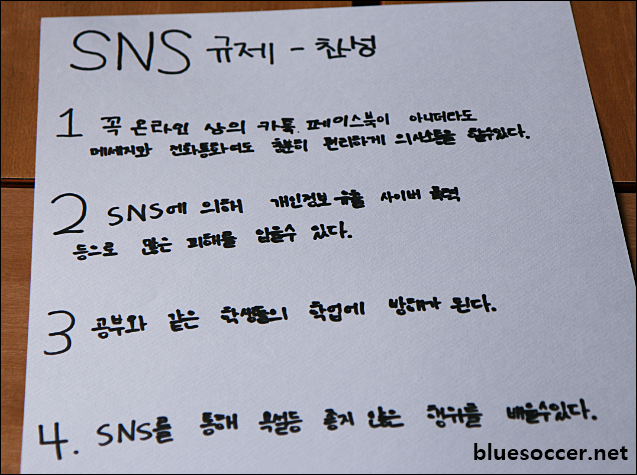 SNS 규제 - 찬성
1 꼭 온라인 상의 카톡, 페이스북이 아니더라도
메세지와 전화통화여도 충분히 편리하게 의사소통을 할수있다.
2 SNS에 의해 개인정보 유출 사이버 폭력
등으로 많은 피해를 입을수 있다.
3 공부와 같은 학생들의 학업에 방해가 된다.
4. SNS를 통해 욕설등 좋지 않은 행위를 배울수있다.
bluesoccer.net